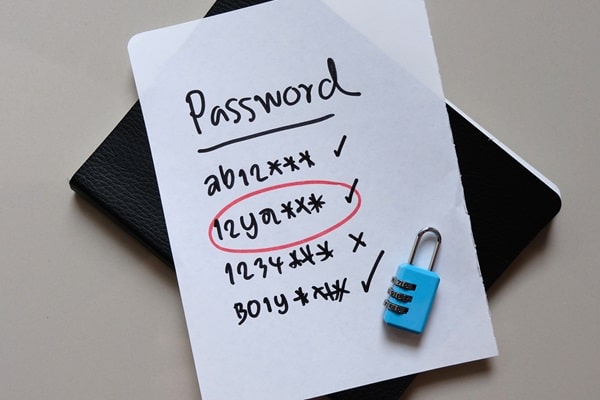 Password
ab12*** ✓
12ya*** ✓
1234*** x
BOly**** ✓